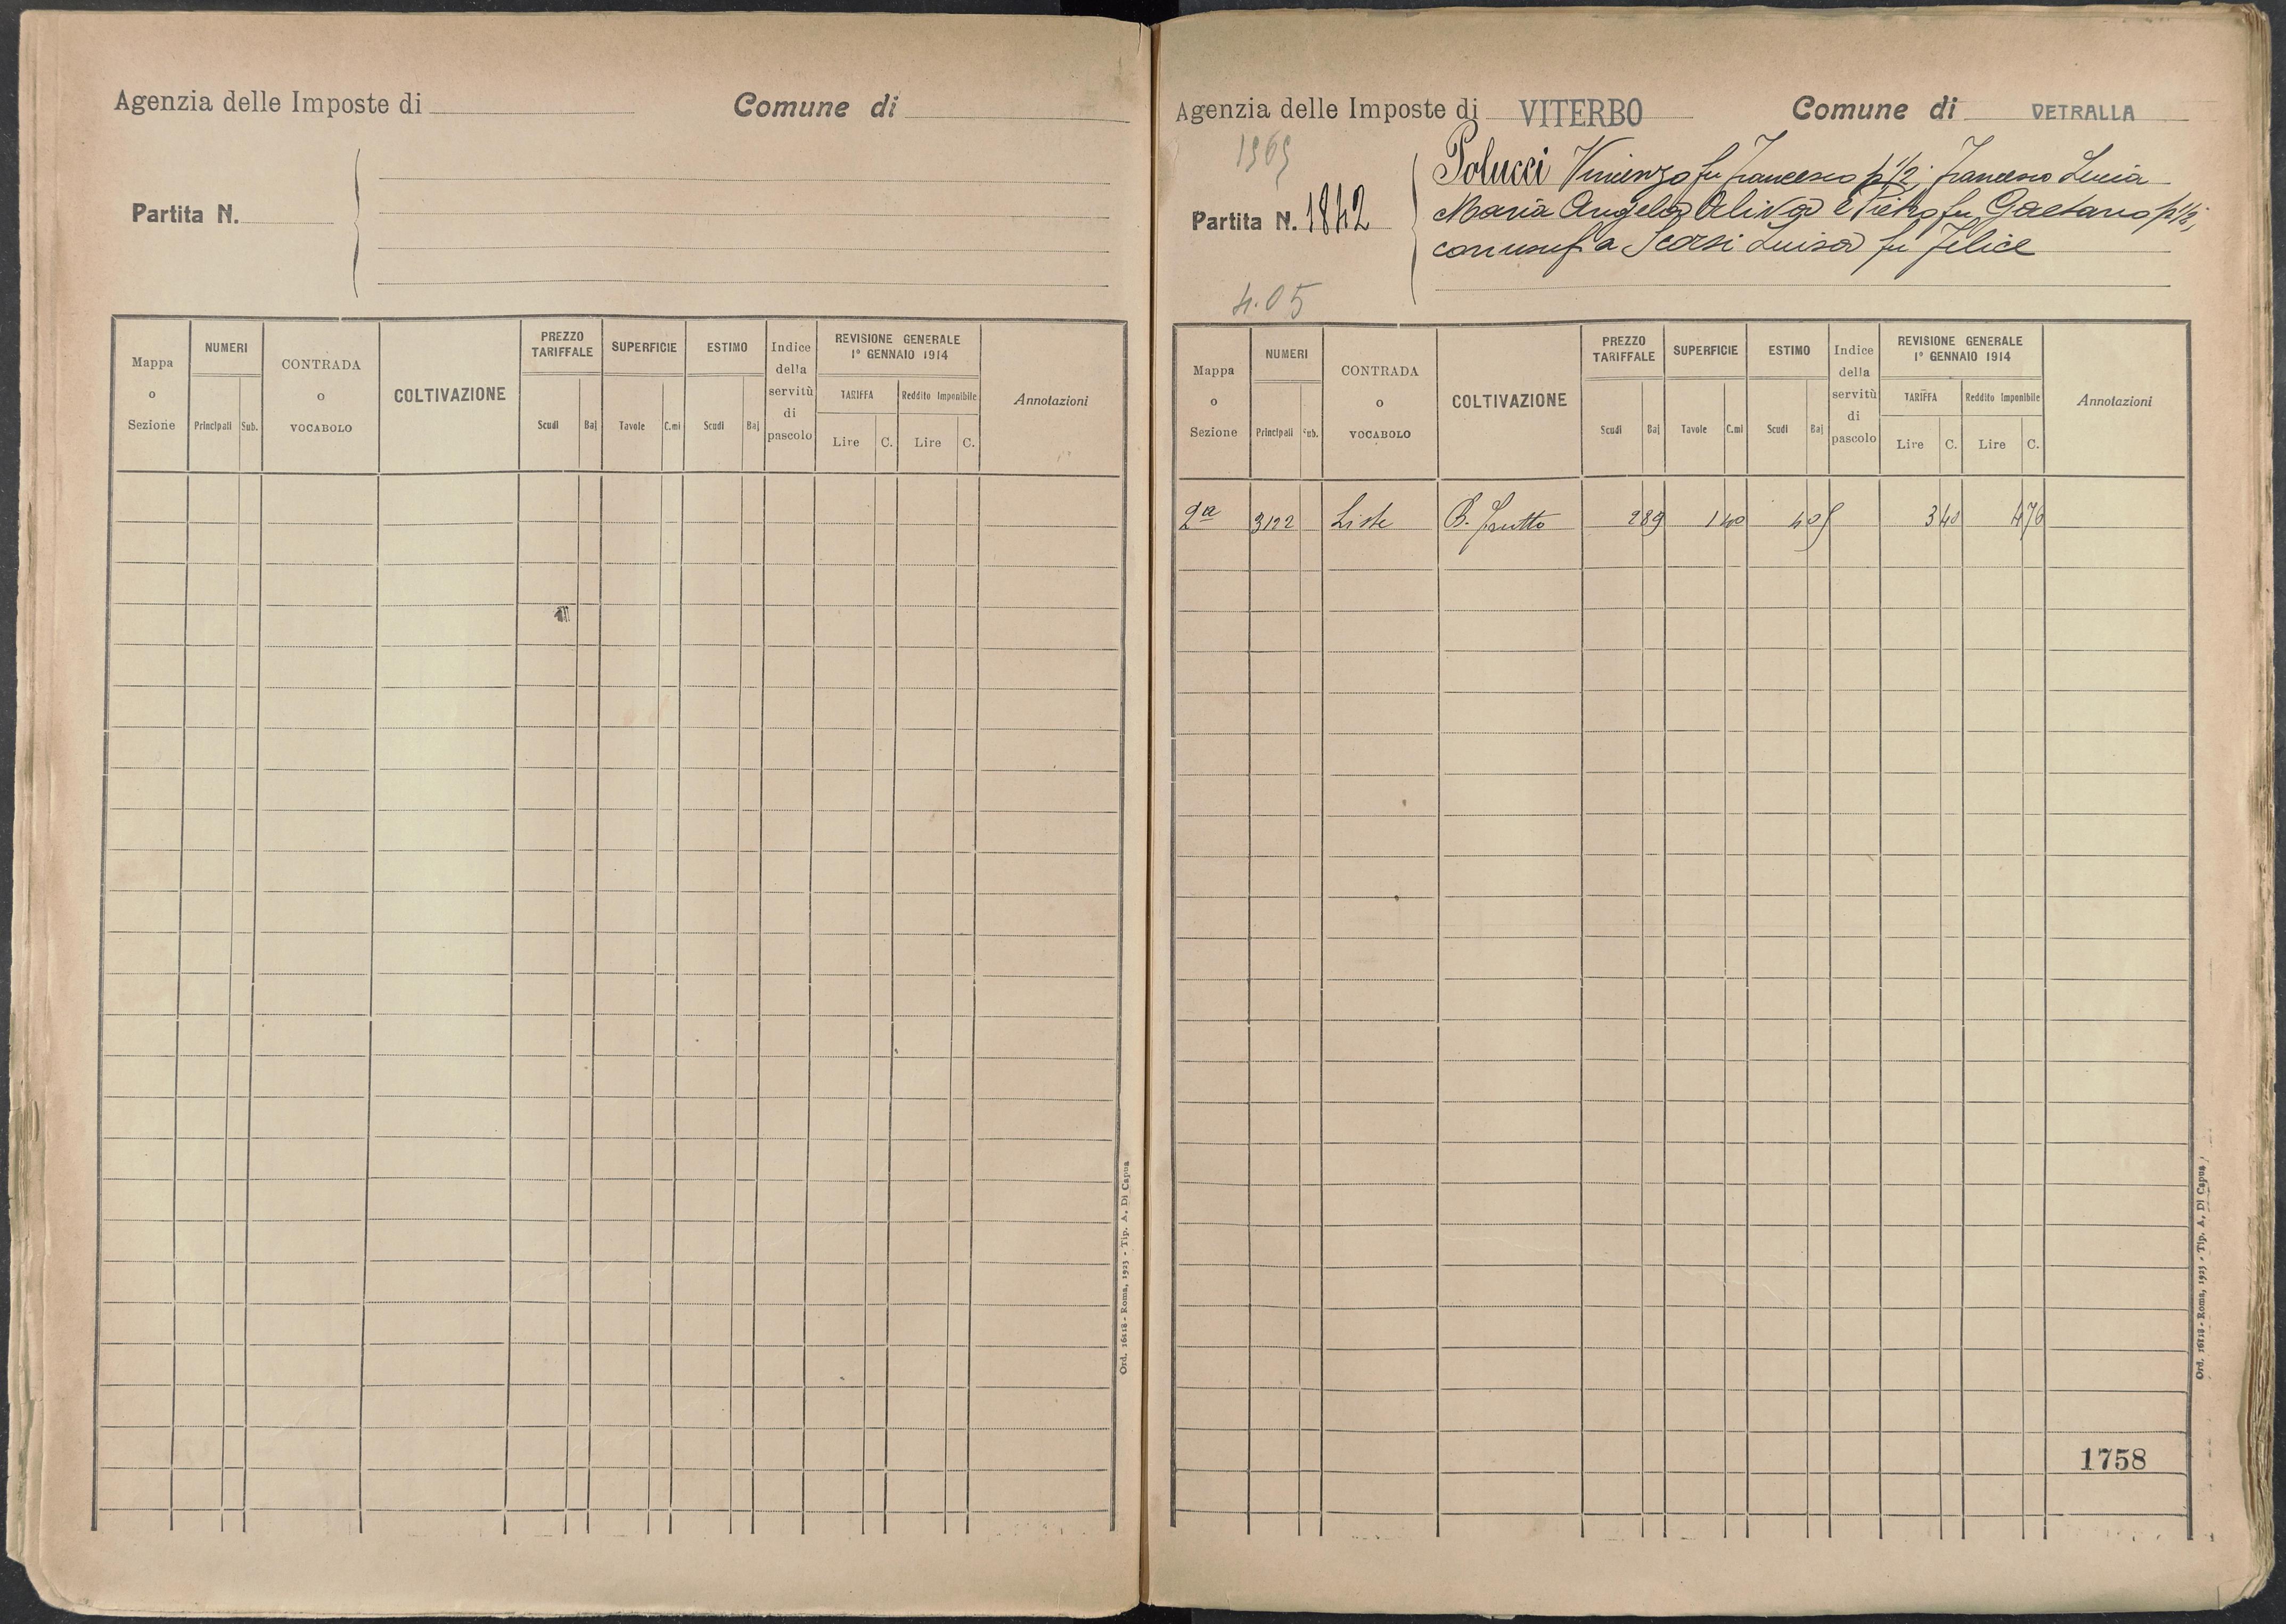 Agenzia delle Imposte di
Comune di
Partita N.
Mappa o Sezione
NUMERI
Principali Sub.
CONTRADA o VOCABOLO
COLTIVAZIONE
PREZZO TARIFFALE
Scudi Baj
SUPERFICIE
Tavole C.mi
ESTIMO
Scudi Baj
Indice della servitù di pascolo
REVISIONE GENERALE 1° GENNAIO 1914
TARIFFA
Lire C.
Reddito Imponibile
Lire C.
Annotazioni
Ord. 16518 - Roma, 1923 - Tip. A. Di Capua
Agenzia delle Imposte di VITERBO
Comune di VETRALLA
1969
Partita N. 1842
Polucci Vincenzo fu Francesco p 1/2; Francesco Lucia
Maria Angela Oliva e Pietro fu Gaetano p 1/2;
con usuf. a Scorsi Luisa fu Felice
4.05
Mappa o Sezione
NUMERI
Principali Sub.
CONTRADA o VOCABOLO
COLTIVAZIONE
PREZZO TARIFFALE
Scudi Baj
SUPERFICIE
Tavole C.mi
ESTIMO
Scudi Baj
Indice della servitù di pascolo
REVISIONE GENERALE 1° GENNAIO 1914
TARIFFA
Lire C.
Reddito Imponibile
Lire C.
Annotazioni
2a 3122 Liste B. frutto 2 89 1 40 4 05 3 40 4 76
1758
Ord. 16518 - Roma, 1923 - Tip. A. Di Capua